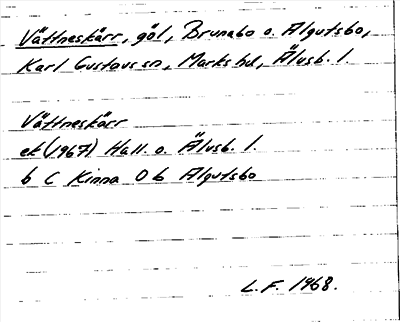 Vättneskärr, göl, Brunabo o. Algutsbo,
Karl Gustavs sn, Marks hd, Älvsb. l.
Vättneskärr
ek (1967) Hall. o. Älvsb. l.
b C Kinna O b Algutsbo
L.F. 1968.